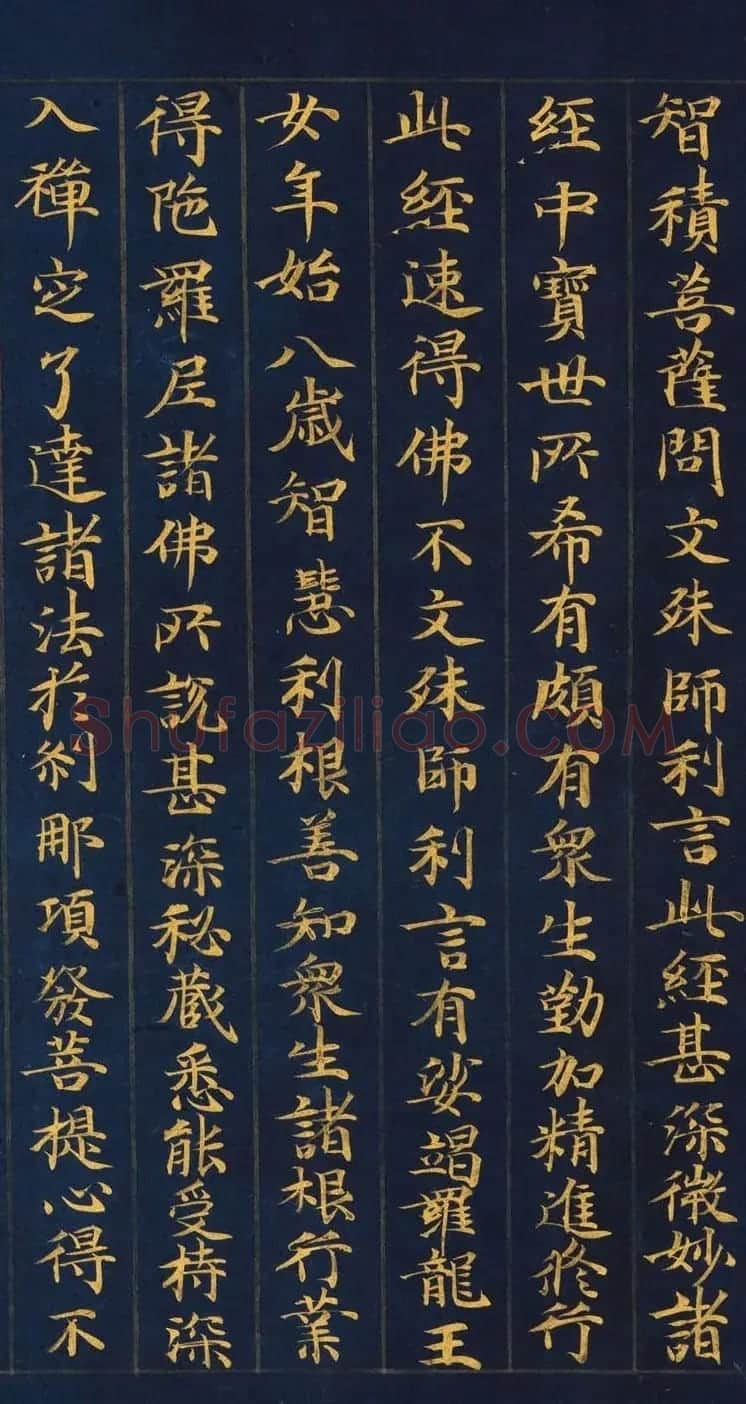 智積菩薩問文殊師利言此經甚深微妙諸
經中寶世所希有頗有衆生勤加精進修行
此經速得佛不文殊師利言有娑竭羅龍王
女年始八歲智慧利根善知衆生諸根行業
得陁羅尼諸佛所說甚深秘蔵悉能受持深
入禪定了達諸法於刹那項發菩提心得不
Shufaziliao.COM